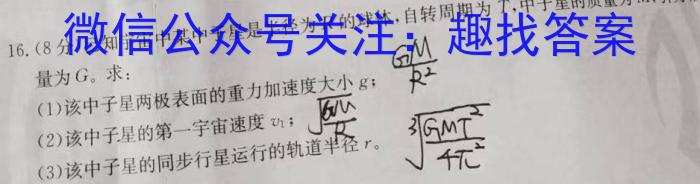 微信公众号关注：趣找答案
16.(8分)已知宇宙中某中子星是半径为R的球体,自转周期为T,中子星的质量为M,
量为G。求：
(1)该中子星两极表面的重力加速度大小g；
GM/R²
(2)该中子星的第一宇宙速度v₁；
√(GM/R)
(3)该中子星的同步行星运行的轨道半径r。
³√(GMT²/4π²)